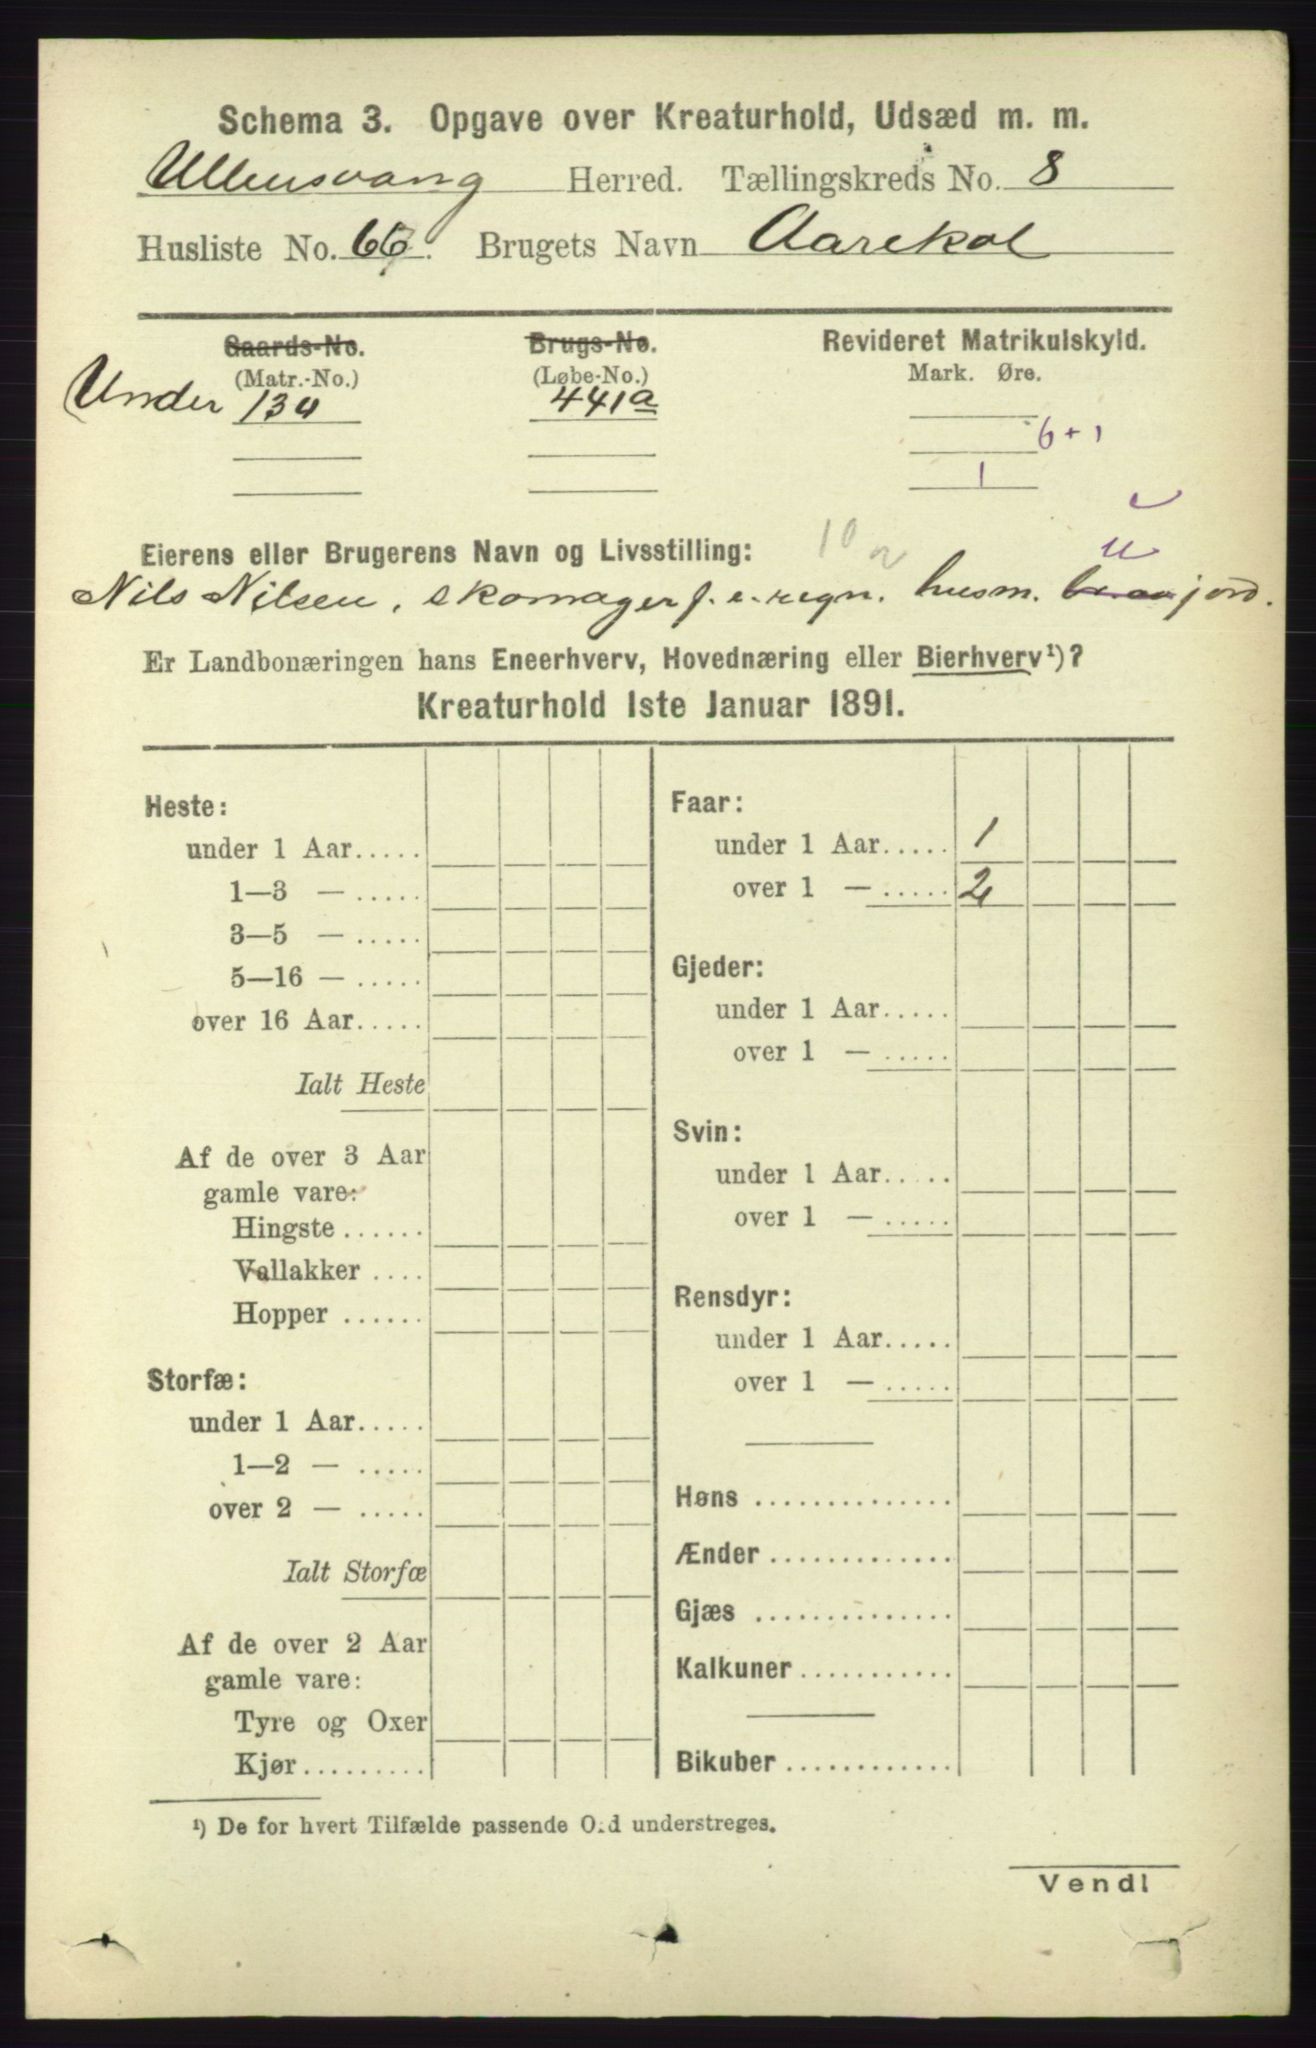 Schema 3. Opgave over Kreaturhold, Udsæd m. m.
Ullensvang Herred. Tællingskreds No. 8
Husliste No. 66. Brugets Navn Aarekol
Gaards-No. Brugs-No. Revideret Matrikulskyld.
(Matr.-No.) (Løbe-No.) Mark. Øre.
Under 134 441a
6+1
1
Eierens eller Brugerens Navn og Livsstilling: 10
Nils Nilsen, skomager f. e. regn. husm. u jord.
Er Landbonæringen hans Eneerhverv, Hovednæring eller Bierhverv¹)?
Kreaturhold 1ste Januar 1891.
Heste:
under 1 Aar.....
1—3 — .....
3—5 — .....
5—16 — .....
over 16 Aar.....
Ialt Heste
Af de over 3 Aar
gamle vare:
Hingste ......
Vallakker ....
Hopper ......
Storfæ:
under 1 Aar.....
1—2 — .....
over 2 — .....
Ialt Storfæ
Af de over 2 Aar
gamle vare:
Tyre og Oxer
Kjør.........
Faar:
under 1 Aar..... 1
over 1 — ..... 2
Gjeder:
under 1 Aar.....
over 1 — .....
Svin:
under 1 Aar.....
over 1 — .....
Rensdyr:
under 1 Aar.....
over 1 — .....
Høns ..............
Ænder .............
Gjæs ..............
Kalkuner...........
Bikuber ............
¹) De for hvert Tilfælde passende O.d understreges.
Vend!